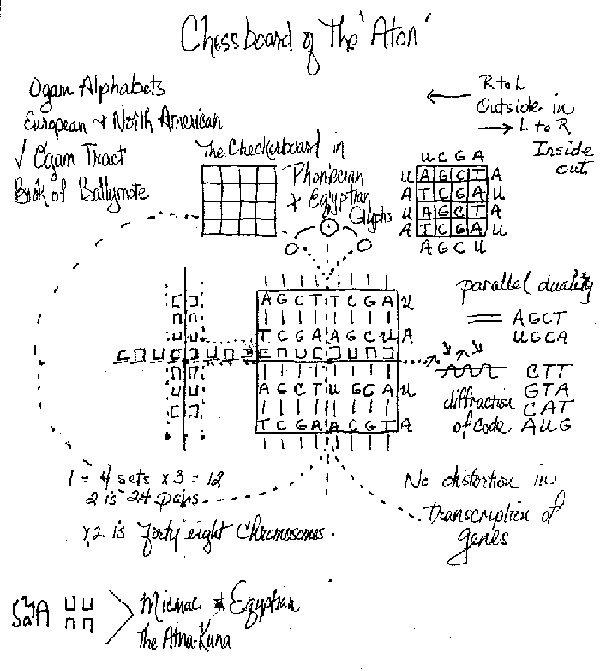 Chessboard of The "Aton"
Ogam Alphabets
European & North American
√ Ogam Tract
Book of Ballymote
The Checkerboard in
Phonician
& Egyptian
Glyphs
← R to L
Outside in
→ L to R
Inside
out
U C G A
U A G C T A
A T C G A U
U A G C T A
A T C G A U
A G C U
A G C T T C G A U
T C G A A G C U A
A G C T U G C A U
T C G A A C G T A
parallel duality
AGCT
UGCA
CTT
GTA
CAT
AUG
diffraction
of code
1 = 4 sets x 3 = 12
2 is 24 pairs
x2 is forty eight Chromosomes.
No distortion in
Transcription of
genes
Micmac & Egyptian
The Atna-Kuna